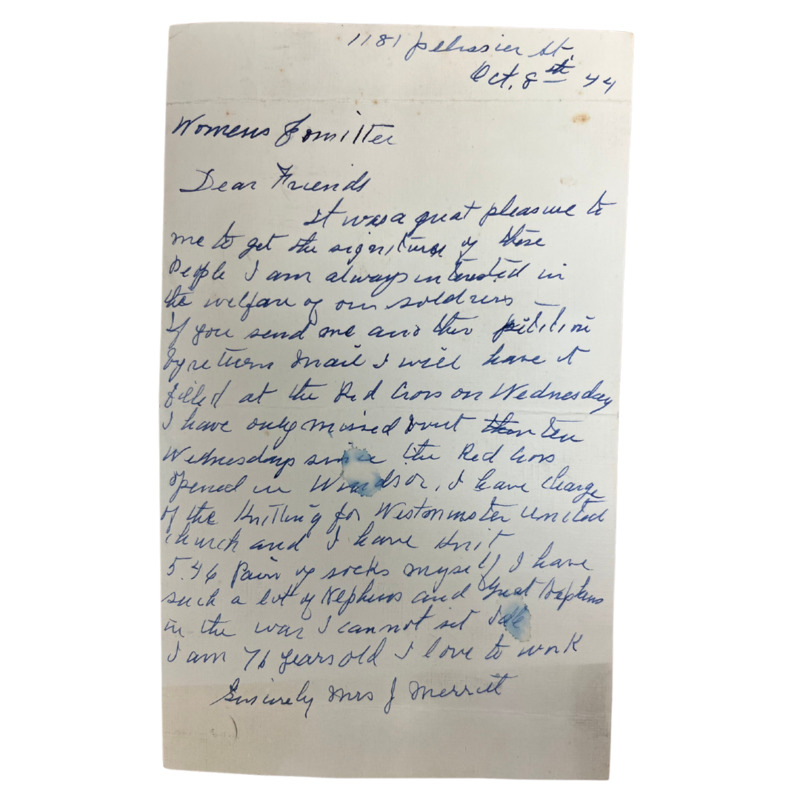 1181 pelissier St.
Oct. 8th 44
Womens Comittee
Dear Friends
It was a great pleasure to
me to get the signitures of these
People I am always intrested in
the welfare of our soldiers
if you send me another pitition
by return mail I will have it
filled at the Red Cross on Wednesday
I have only missed bout ten
Wednesdays since the Red Cross
opened in Windsor, I have charge
of the Knitting for Westminster United
church and I have Knit
5.46 Pair of socks myself I have
such a lot of Nephews and great Nephews
in the war I cannot sit Idle
I am 76 years old I love to work
Sincerely Mrs J Merritt